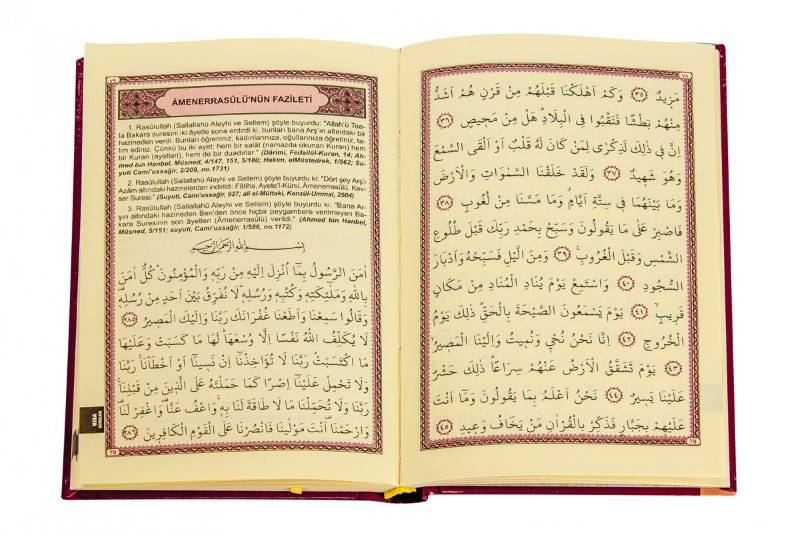 ٧٨
مَزِيدٌ ٣٥ وَكَمْ اَهْلَكْنَا قَبْلَهُمْ مِنْ قَرْنٍ هُمْ اَشَدُّ
مِنْهُمْ بَطْشًا فَنَقَّبُوا فِي الْبِلَادِ هَلْ مِنْ مَحِيصٍ ٣٦
اِنَّ فِي ذٰلِكَ لَذِكْرٰى لِمَنْ كَانَ لَهُ قَلْبٌ اَوْ اَلْقَى السَّمْعَ
وَهُوَ شَهِيدٌ ٣٧ وَلَقَدْ خَلَقْنَا السَّمٰوَاتِ وَالْاَرْضَ
وَمَا بَيْنَهُمَا فِي سِتَّةِ اَيَّامٍ وَمَا مَسَّنَا مِنْ لُغُوبٍ ٣٨
فَاصْبِرْ عَلٰى مَا يَقُولُونَ وَسَبِّحْ بِحَمْدِ رَبِّكَ قَبْلَ طُلُوعِ
الشَّمْسِ وَقَبْلَ الْغُرُوبِ ٣٩ وَمِنَ الَّيْلِ فَسَبِّحْهُ وَاَدْبَارَ
السُّجُودِ ٤٠ وَاسْتَمِعْ يَوْمَ يُنَادِ الْمُنَادِ مِنْ مَكَانٍ
قَرِيبٍ ٤١ يَوْمَ يَسْمَعُونَ الصَّيْحَةَ بِالْحَقِّ ذٰلِكَ يَوْمُ
الْخُرُوجِ ٤٢ اِنَّا نَحْنُ نُحْيِ وَنُمِيتُ وَاِلَيْنَا الْمَصِيرُ
٤٣ يَوْمَ تَشَقَّقُ الْاَرْضُ عَنْهُمْ سِرَاعًا ذٰلِكَ حَشْرٌ
عَلَيْنَا يَسِيرٌ ٤٤ نَحْنُ اَعْلَمُ بِمَا يَقُولُونَ وَمَا اَنْتَ
عَلَيْهِمْ بِجَبَّارٍ فَذَكِّرْ بِالْقُرْاٰنِ مَنْ يَخَافُ وَعِيدِ ٤٥
78
٧٩
ÂMENERRASÛLÜ'NÜN FAZİLETİ
1. Rasûlullah (Sallallahü Aleyhi ve Sellem) şöyle buyurdu: "Allah'ü Tea-
la Bakara suresini iki âyetle sona erdirdi ki, bunları bana Arş'ın altındaki bir
hazineden verdi. Bunları öğreniniz, kadınlarınıza, oğullarınıza öğretiniz, ta-
lim ediniz. Çünkü bu iki ayet; hem bir salât (namazda okunan Kuran) hem
bir Kuran (ayetleri), hem de bir duadırlar." (Dârimi, Fedailül-Kuran, 14; Ah-
med bin Hanbel, Müsned, 4/147, 151, 5/180; Hakim, elMüstedrek, 1/562; Su-
yuti Cami'ussağir, 2/209, no.1731)
2. Rasûlullah (Sallallahü Aleyhi ve Sellem) şöyle buyurdu ki: "Dört şey Arş'ı
Azâm altındaki hazinelerden indirildi: Fâtiha, Ayete'l-Kürsi, Âmenerrasûlü, Kev-
ser Suresi." (Suyuti, Cami'ussağir, 927; ali el-Müttaki, Kenzül-Ummal, 2504)
3. Rasûlullah (Sallallahü Aleyhi ve Sellem) şöyle buyurdu ki: "Bana Ar-
şın altındaki hazineden Ben'den önce hiçbir peygambere verilmeyen Ba-
kara Suresinin son âyetleri (Âmenerrasûlü) verildi." (Ahmed bin Hanbel,
Müsned, 5/151; suyuti, Cami'ussağir, 1/586, no.1172)
بِسْمِ اللّٰهِ الرَّحْمٰنِ الرَّحِيمِ
اٰمَنَ الرَّسُولُ بِمَا اُنْزِلَ اِلَيْهِ مِنْ رَبِّهِ وَالْمُؤْمِنُونَ كُلٌّ اٰمَنَ
بِاللّٰهِ وَمَلٰئِكَتِهِ وَكُتُبِهِ وَرُسُلِهِ لَا نُفَرِّقُ بَيْنَ اَحَدٍ مِنْ رُسُلِهِ
وَقَالُوا سَمِعْنَا وَاَطَعْنَا غُفْرَانَكَ رَبَّنَا وَاِلَيْكَ الْمَصِيرُ ٢٨٥
لَا يُكَلِّفُ اللّٰهُ نَفْسًا اِلَّا وُسْعَهَا لَهَا مَا كَسَبَتْ وَعَلَيْهَا
مَا اكْتَسَبَتْ رَبَّنَا لَا تُؤَاخِذْنَا اِنْ نَسِينَا اَوْ اَخْطَاْنَا رَبَّنَا
وَلَا تَحْمِلْ عَلَيْنَا اِصْرًا كَمَا حَمَلْتَهُ عَلَى الَّذِينَ مِنْ قَبْلِنَا
رَبَّنَا وَلَا تُحَمِّلْنَا مَا لَا طَاقَةَ لَنَا بِهِ وَاعْفُ عَنَّا وَاغْفِرْ لَنَا
وَارْحَمْنَا اَنْتَ مَوْلٰينَا فَانْصُرْنَا عَلَى الْقَوْمِ الْكَافِرِينَ ٢٨٦
79